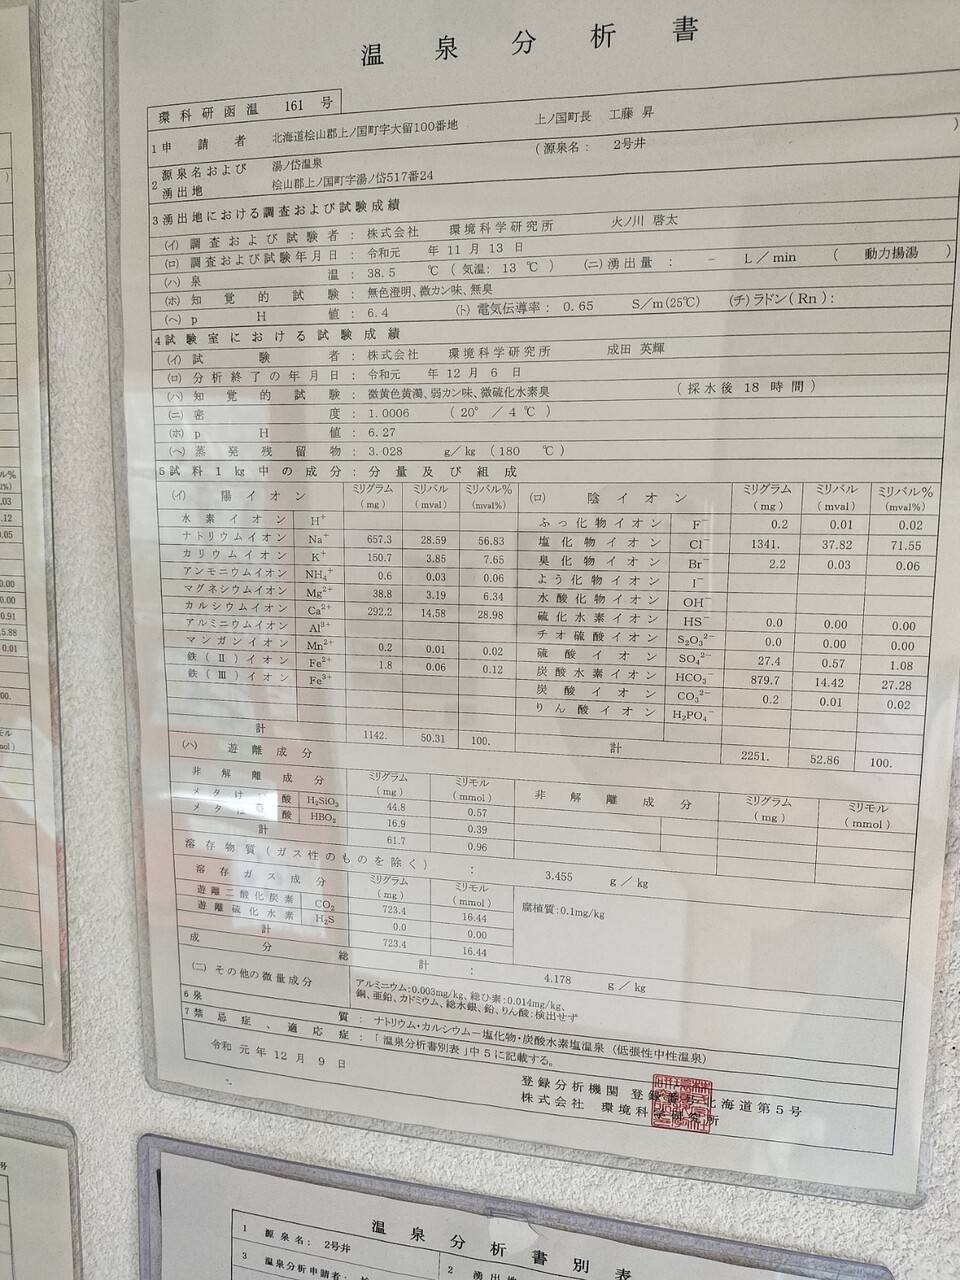 温泉分析書
環科研函温 161 号
1 申請者 北海道桧山郡上ノ国町字大留100番地 上ノ国町長 工藤 昇
2 源泉名および湧出地 湯ノ岱温泉 (源泉名: 2号井)
桧山郡上ノ国町字湯ノ岱517番24
3 湧出地における調査および試験成績
(イ) 調査および試験者 : 株式会社 環境科学研究所 火ノ川 啓太
(ロ) 調査および試験年月日 : 令和元 年 11 月 13 日
(ハ) 泉温 : 38.5 ℃ (気温: 13 ℃) (ニ) 湧出量 : − L/min (動力揚湯)
(ホ) 知覚的試験 : 無色澄明、微カン味、無臭
(ヘ) pH値 : 6.4 (ト) 電気伝導率 : 0.65 S/m(25℃) (チ) ラドン(Rn) :
4 試験室における試験成績
(イ) 試験者 : 株式会社 環境科学研究所 成田 英輝
(ロ) 分析終了の年月日 : 令和元 年 12 月 6 日
(ハ) 知覚的試験 : 微黄色黄濁、弱カン味、微硫化水素臭 (採水後 18 時間)
(ニ) 密度 : 1.0006 (20° / 4 ℃)
(ホ) pH値 : 6.27
(ヘ) 蒸発残留物 : 3.028 g/kg (180 ℃)
5 試料1kg中の成分:分量及び組成
(イ) 陽イオン ミリグラム (mg) ミリバル (mval) ミリバル% (mval%) (ロ) 陰イオン ミリグラム (mg) ミリバル (mval) ミリバル% (mval%)
水素イオン H⁺ ふっ化物イオン F⁻ 0.2 0.01 0.02
ナトリウムイオン Na⁺ 657.3 28.59 56.83 塩化物イオン Cl⁻ 1341. 37.82 71.55
カリウムイオン K⁺ 150.7 3.85 7.65 臭化物イオン Br⁻ 2.2 0.03 0.06
アンモニウムイオン NH₄⁺ 0.6 0.03 0.06 よう化物イオン I⁻
マグネシウムイオン Mg²⁺ 38.8 3.19 6.34 水酸化物イオン OH⁻
カルシウムイオン Ca²⁺ 292.2 14.58 28.98 硫化水素イオン HS⁻ 0.0 0.00 0.00
アルミニウムイオン Al³⁺ チオ硫酸イオン S₂O₃²⁻ 0.0 0.00 0.00
マンガンイオン Mn²⁺ 0.2 0.01 0.02 硫酸イオン SO₄²⁻ 27.4 0.57 1.08
鉄(Ⅱ)イオン Fe²⁺ 1.8 0.06 0.12 炭酸水素イオン HCO₃⁻ 879.7 14.42 27.28
鉄(Ⅲ)イオン Fe³⁺ 炭酸イオン CO₃²⁻ 0.2 0.01 0.02
りん酸イオン H₂PO₄⁻
計 1142. 50.31 100. 計 2251. 52.86 100.
(ハ) 遊離成分
非解離成分 ミリグラム (mg) ミリモル (mmol) 非解離成分 ミリグラム (mg) ミリモル (mmol)
メタけい酸 H₂SiO₃ 44.8 0.57
酸 HBO₂ 16.9 0.39
計 61.7 0.96
溶存物質(ガス性のものを除く) : 3.455 g/kg
溶存ガス成分 ミリグラム (mg) ミリモル (mmol) 腐植質:0.1mg/kg
遊離二酸化炭素 CO₂ 723.4 16.44
遊離硫化水素 H₂S 0.0 0.00
計 723.4 16.44
成分総計 : 4.178 g/kg
(ニ) その他の微量成分 アルミニウム:0.003mg/kg、総ひ素:0.014mg/kg、
銅、亜鉛、カドミウム、総水銀、鉛、りん酸:検出せず
6 泉質 : ナトリウム・カルシウム−塩化物・炭酸水素塩温泉 (低張性中性温泉)
7 禁忌症、適応症 : 「温泉分析書別表」中5に記載する。
令和 元 年 12 月 9 日
登録分析機関 登録番号 北海道第5号
株式会社 環境科学研究所
温泉分析書別表
1 源泉名: 2号井 2
3 温泉分析申請者: